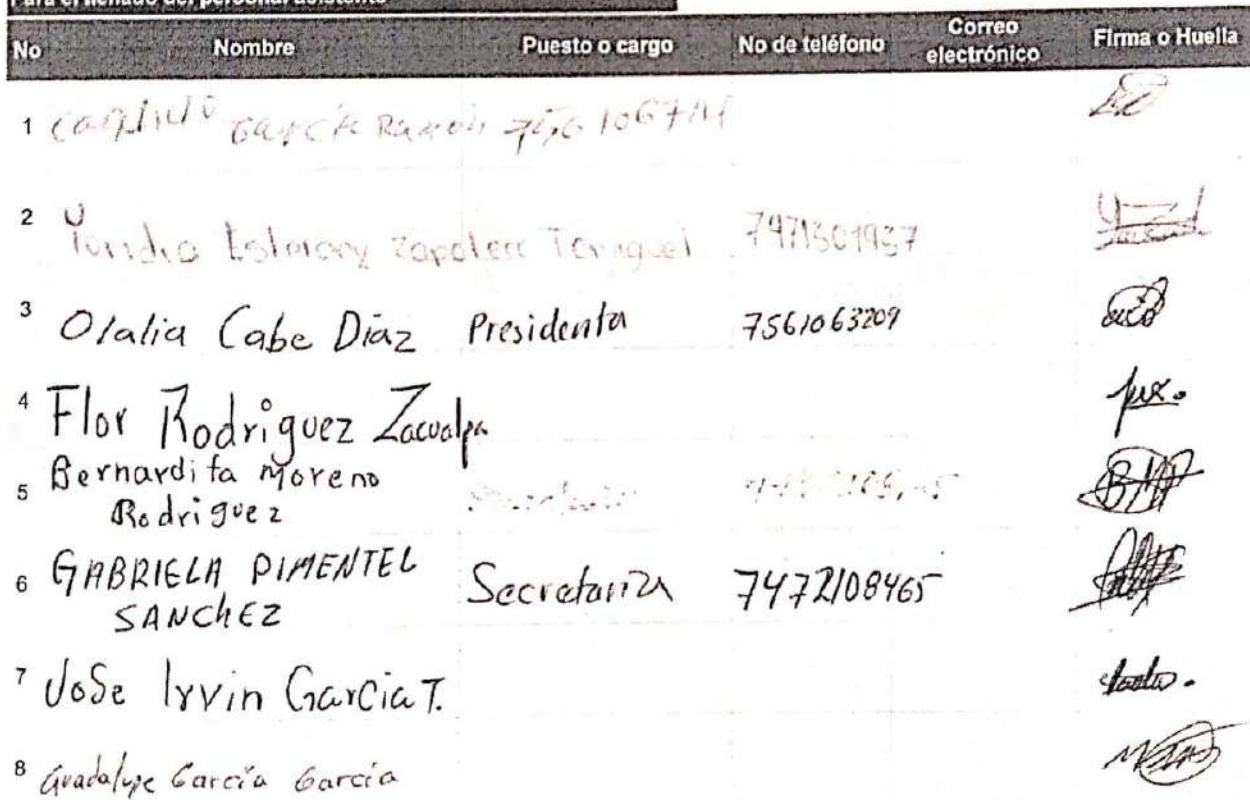 Para el llenado del personal asistente
No Nombre Puesto o cargo No de teléfono Correo electrónico Firma o Huella
1 García Ramón
2 Zapoteco 7471301937
3 Olalia Cabe Diaz Presidenta 7561063209
4 Flor Rodriguez Zacualpa
5 Bernardita Moreno
Rodriguez
6 GABRIELA PIMENTEL Secretaria 7472108465
SANCHEZ
7 José Irvin Garcia T.
8 Guadalupe García García